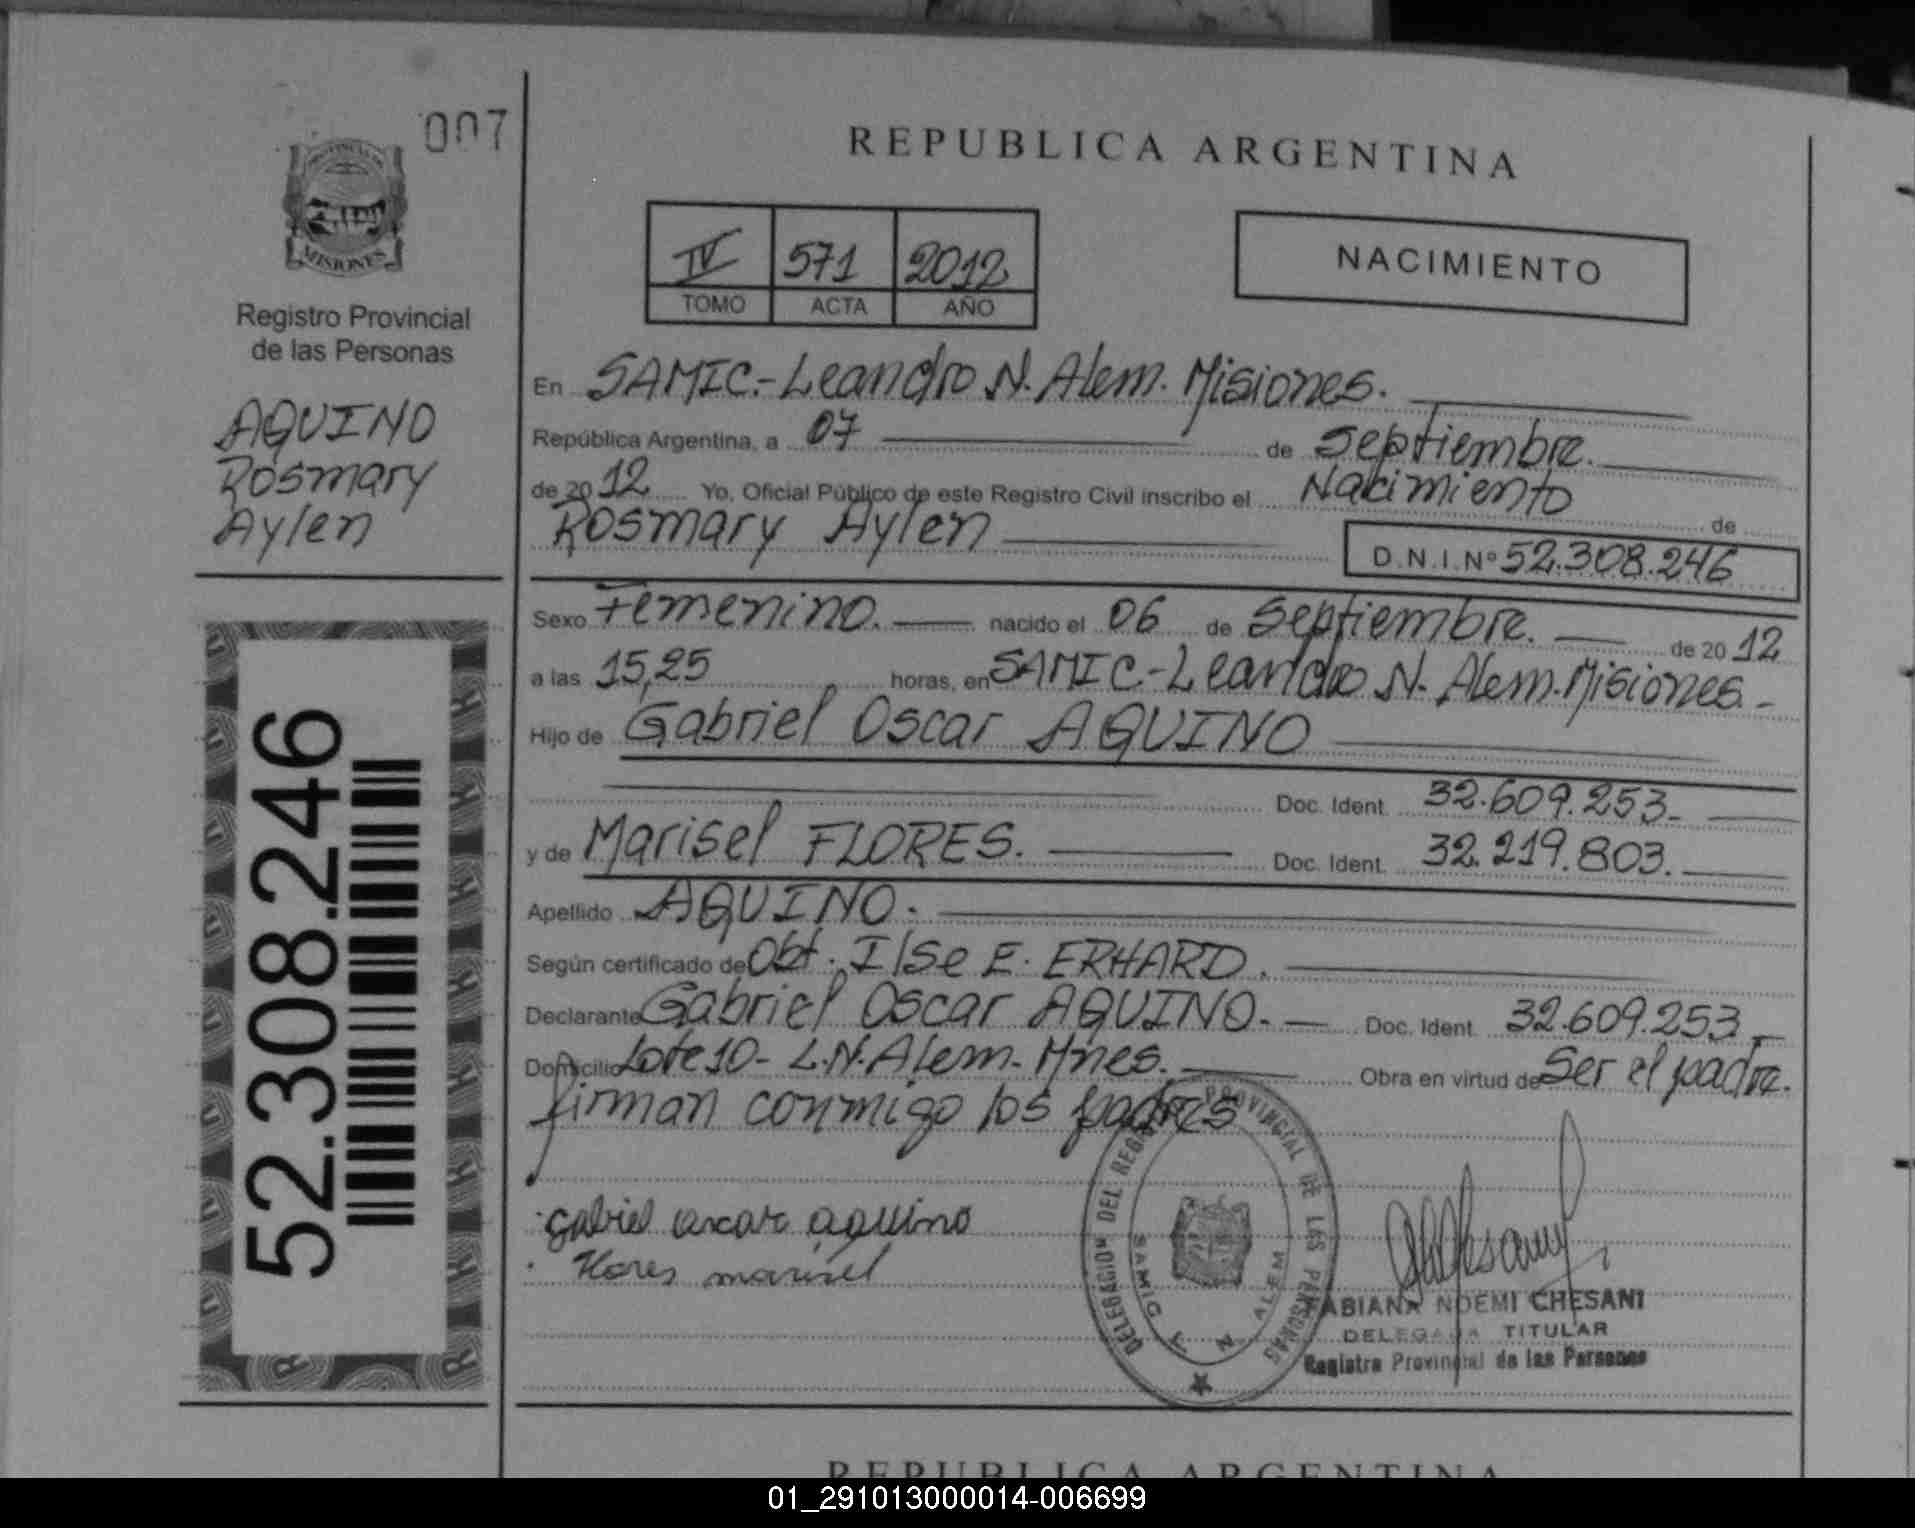 007
PROVINCIA DE
MISIONES
Registro Provincial
de las Personas
AQUINO
Rosmary
Aylen
52.308.246
REPUBLICA ARGENTINA
IV 571 2012
TOMO ACTA AÑO
NACIMIENTO
En SAMIC.-Leandro N. Alem. Misiones.
República Argentina, a 07 de Septiembre.
de 2012 Yo, Oficial Público de este Registro Civil inscribo el Nacimiento de
Rosmary Aylen
D.N.I.Nº 52.308.246
Sexo Femenino. nacido el 06 de Septiembre. de 2012
a las 15,25 horas, en SAMIC-Leandro N. Alem. Misiones.-
Hijo de Gabriel Oscar AQUINO
Doc. Ident. 32.609.253-
y de Marisel FLORES. Doc. Ident. 32.219.803.
Apellido AQUINO.
Según certificado de Obt. Ilse E. ERHARD.
Declarante Gabriel Oscar AQUINO.- Doc. Ident. 32.609.253
Domicilio Lote 10- L.N. Alem.- Mnes. Obra en virtud de Ser el padre.
firman conmigo los padres
gabriel oscar aquino
Flores marisel
DELEGACION DEL REGISTRO PROVINCIAL DE LAS PERSONAS
SAMIC L. N. ALEM
FABIANA NOEMI CHESANI
DELEGADA TITULAR
Registro Provincial de las Personas
REPUBLICA ARGENTINA
01_291013000014-006699